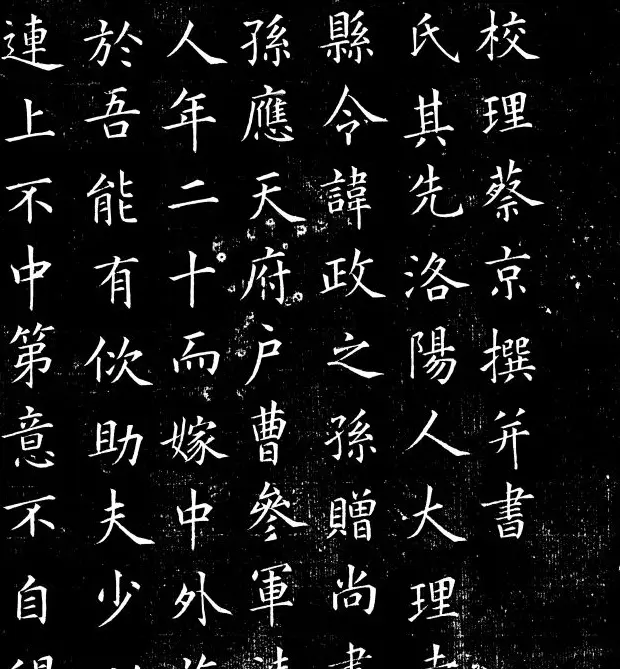 校理蔡京撰并書
氏其先洛陽人大理
縣令諱政之孫贈尚書
孫應天府户曹參軍
人年二十而嫁中外
於吾能有佽助夫少
連上不中第意不自得